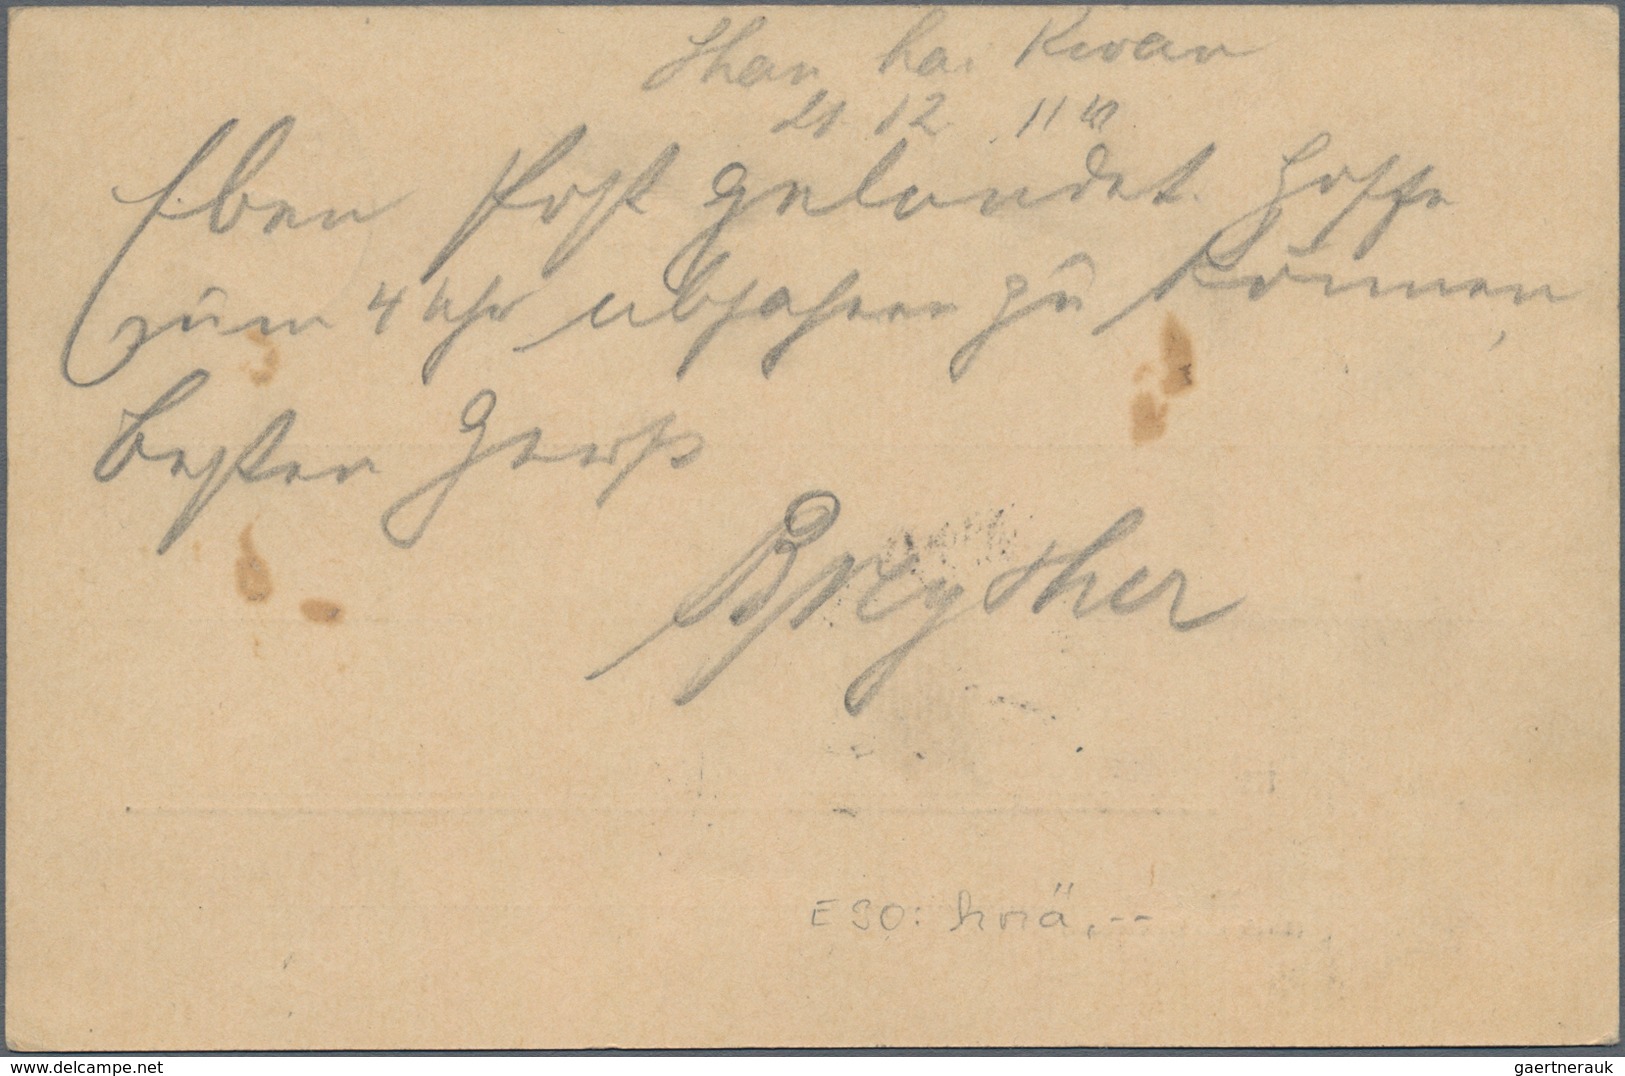 Shan hai Kwan
21. 12. 11 U
Eben Post gelandet. Hoffe
zum 4 Uhr abfahren zu können,
besten Gruß
Breyther
E 30:
delcampe.net
gaertnerauk